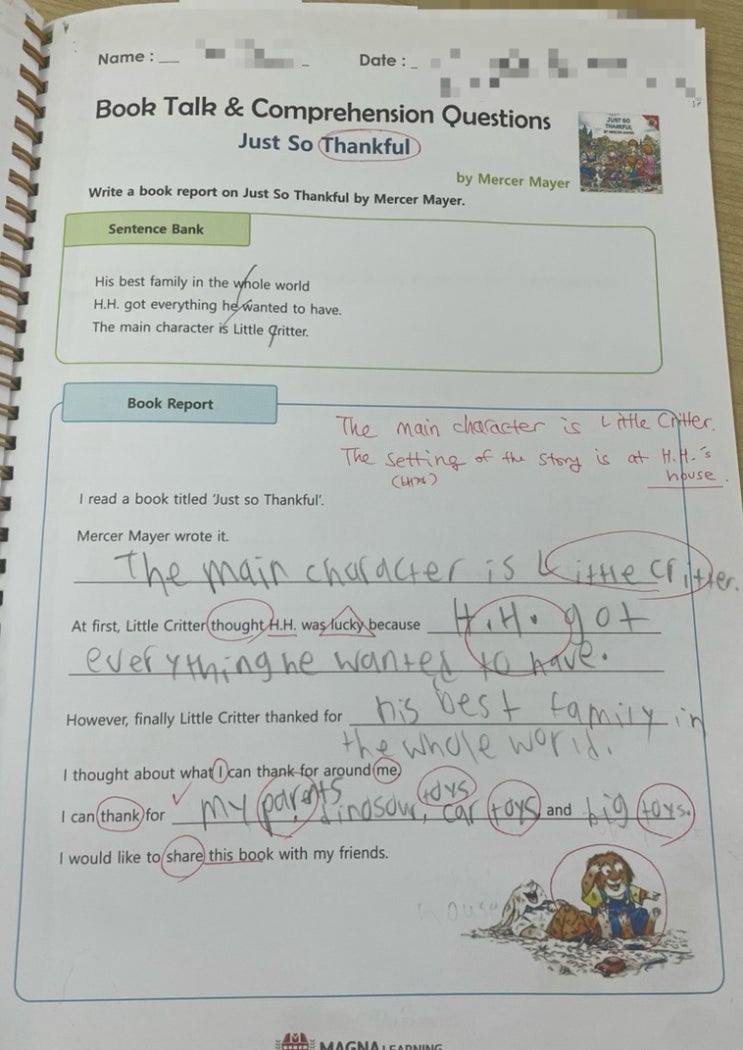 Name :
Date :
Book Talk & Comprehension Questions
Just So Thankful
JUST SO THANKFUL
by Mercer Mayer
Write a book report on Just So Thankful by Mercer Mayer.
Sentence Bank
His best family in the whole world
H.H. got everything he wanted to have.
The main character is Little Critter.
Book Report
The main character is Little Critter.
The setting of the story is at H.H.'s
house.
I read a book titled 'Just so Thankful'.
Mercer Mayer wrote it.
The main character is Little Critter.
At first, Little Critter thought H.H. was lucky because H.H. got
everything he wanted to have.
However, finally Little Critter thanked for his best family in
the whole world.
I thought about what I can thank for around me.
toys
I can thank for my parents, dinosour, car toys and big toys.
I would like to share this book with my friends.
house
MAGNA LEARNING